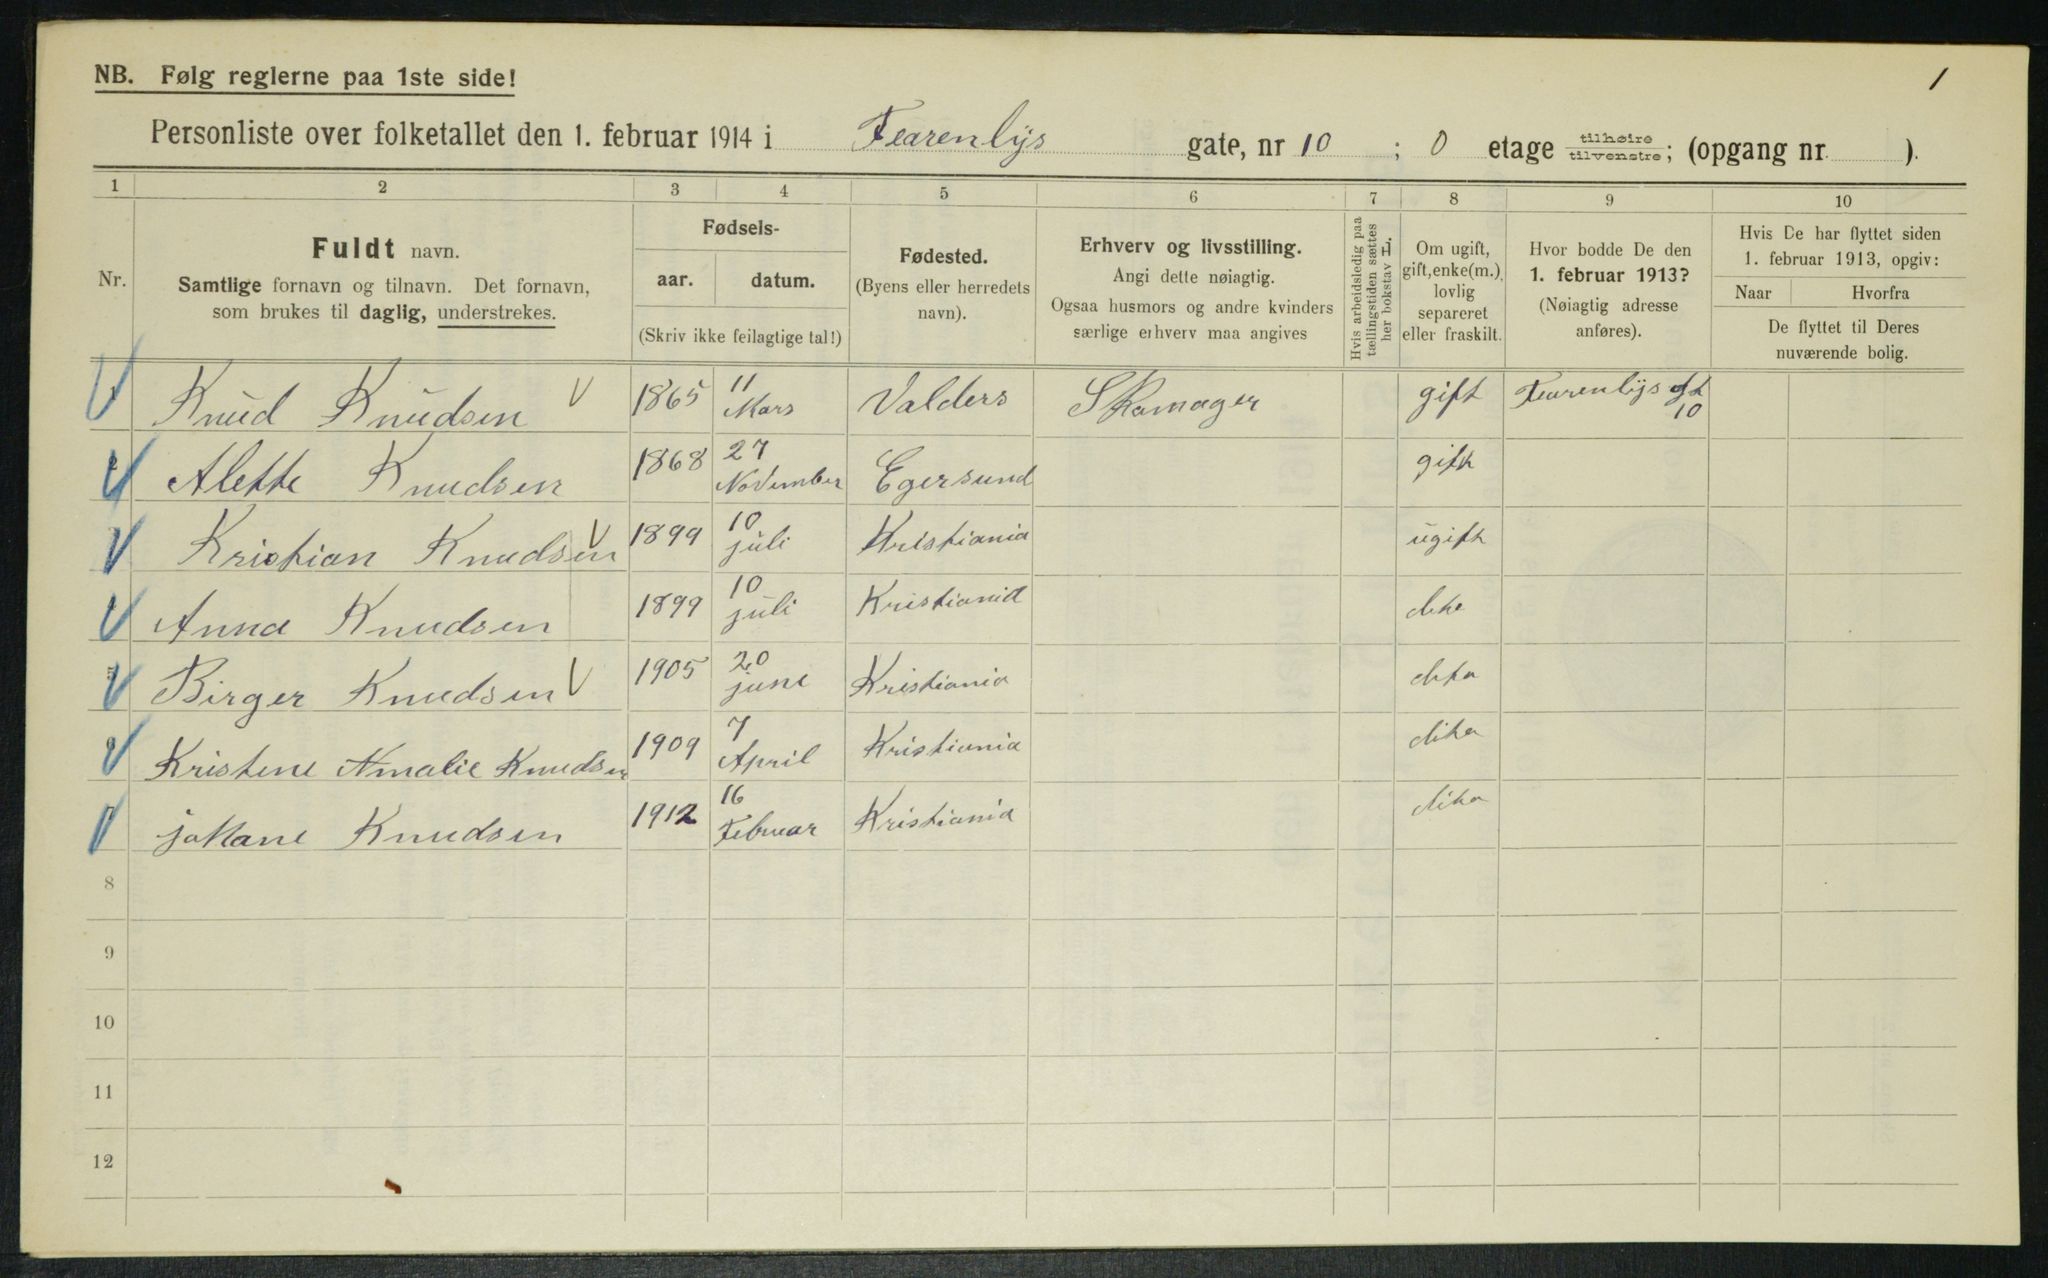 1
NB. Følg reglerne paa 1ste side!
Personliste over folketallet den 1. februar 1914 i Fearenlÿs gate, nr 10 ; 0 etage tilhøire tilvenstre; (opgang nr. ).
1 2 3 4 5 6 7 8 9 10
Nr.
Fuldt navn.
Samtlige fornavn og tilnavn. Det fornavn,
som brukes til daglig, understrekes.
Fødsels-
aar. datum.
(Skriv ikke feilagtige tal!)
Fødested.
(Byens eller herredets
navn).
Erhverv og livsstilling.
Angi dette nøiagtig.
Ogsaa husmors og andre kvinders
særlige erhverv maa angives
Hvis arbeidsledig paa
tællingstiden sættes
her bokstav L.
Om ugift,
gift, enke(m.),
lovlig
separeret
eller fraskilt.
Hvor bodde De den
1. februar 1913?
(Nøiagtig adresse
anføres).
Hvis De har flyttet siden
1. februar 1913, opgiv:
Naar Hvorfra
De flyttet til Deres
nuværende bolig.
1 Knud Knudsen V 1865 11 Mars Valders Skomager gift Fearenlÿs gt 10
2 Alette Knudsen 1868 27 November Egersund gift
3 Kristian Knudsen V 1899 10 juli Kristiania ugift
4 Anna Knudsen 1899 10 juli Kristiania dito
5 Birger Knudsen V 1905 20 june Kristiania dito
6 Kristene Amalie Knudsen 1909 7 April Kristiania dito
7 johane Knudsen 1912 16 Februar Kristiania dito
8
9
10
11
12